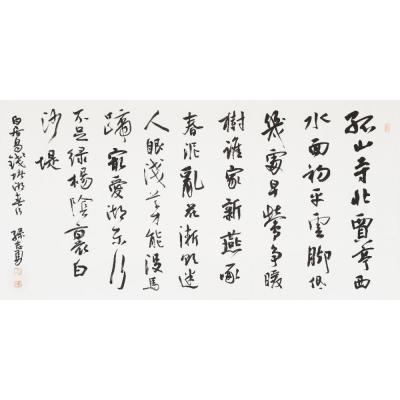 孤山寺北賈亭西
水面初平雲腳低
幾處早鶯争暖
樹誰家新燕啄
春泥亂花漸欲迷
人眼淺草才能没馬
蹄最愛湖東行
不足緑楊陰裏白
沙堤
白居易錢塘湖春行